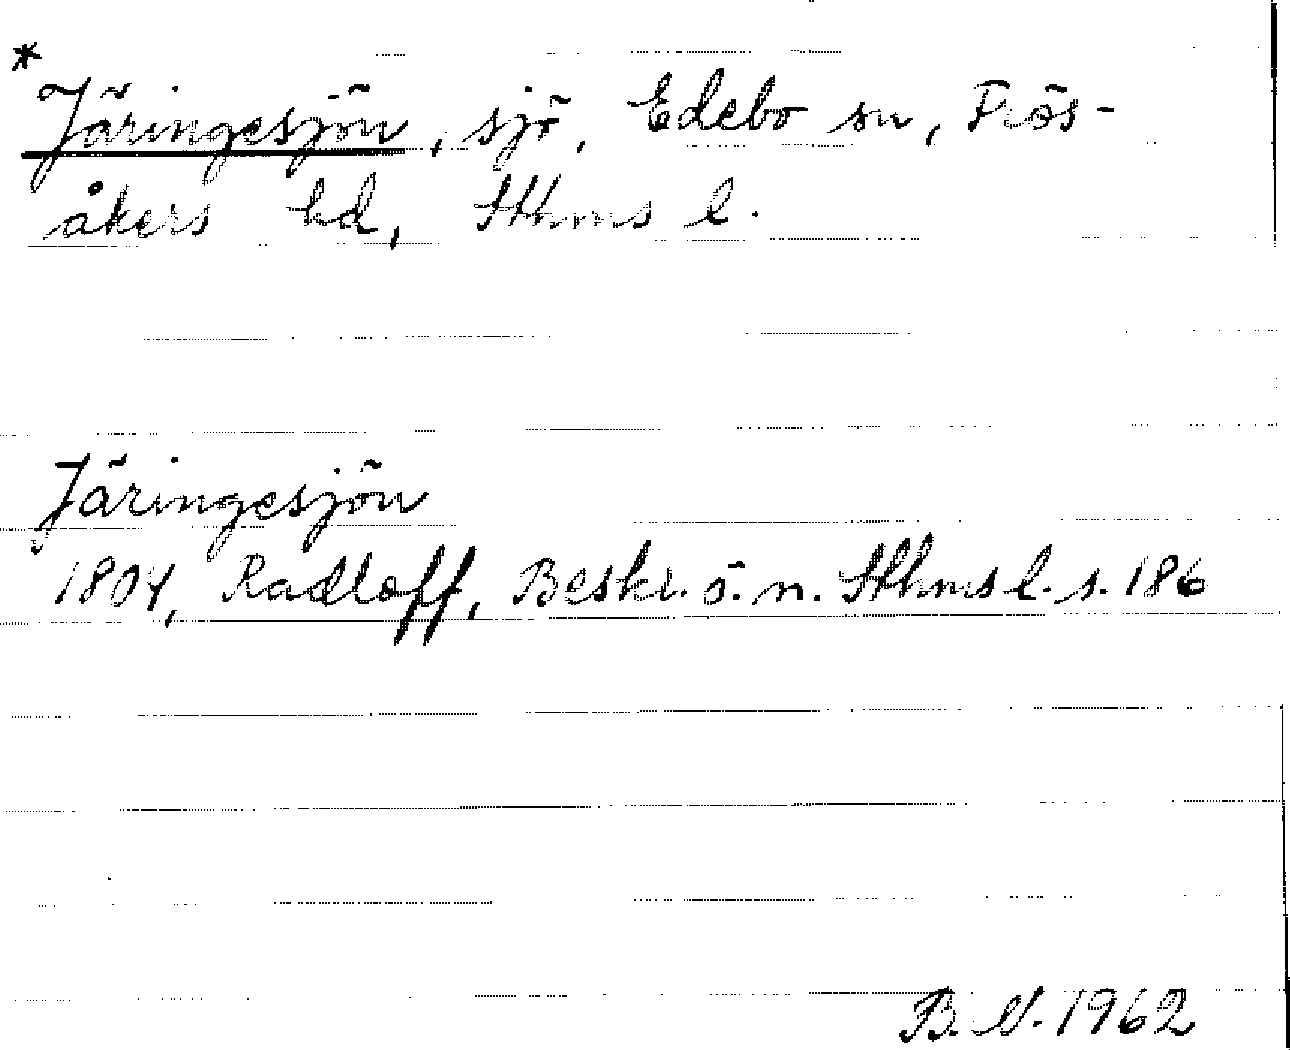 *
Järingesjön, sjö, Edebo sn, Frös-
åkers hd, Sthms l.
Järingesjön
1804, Radloff, Beskr. ö. n. Sthms l. s. 186
B. N. 1962